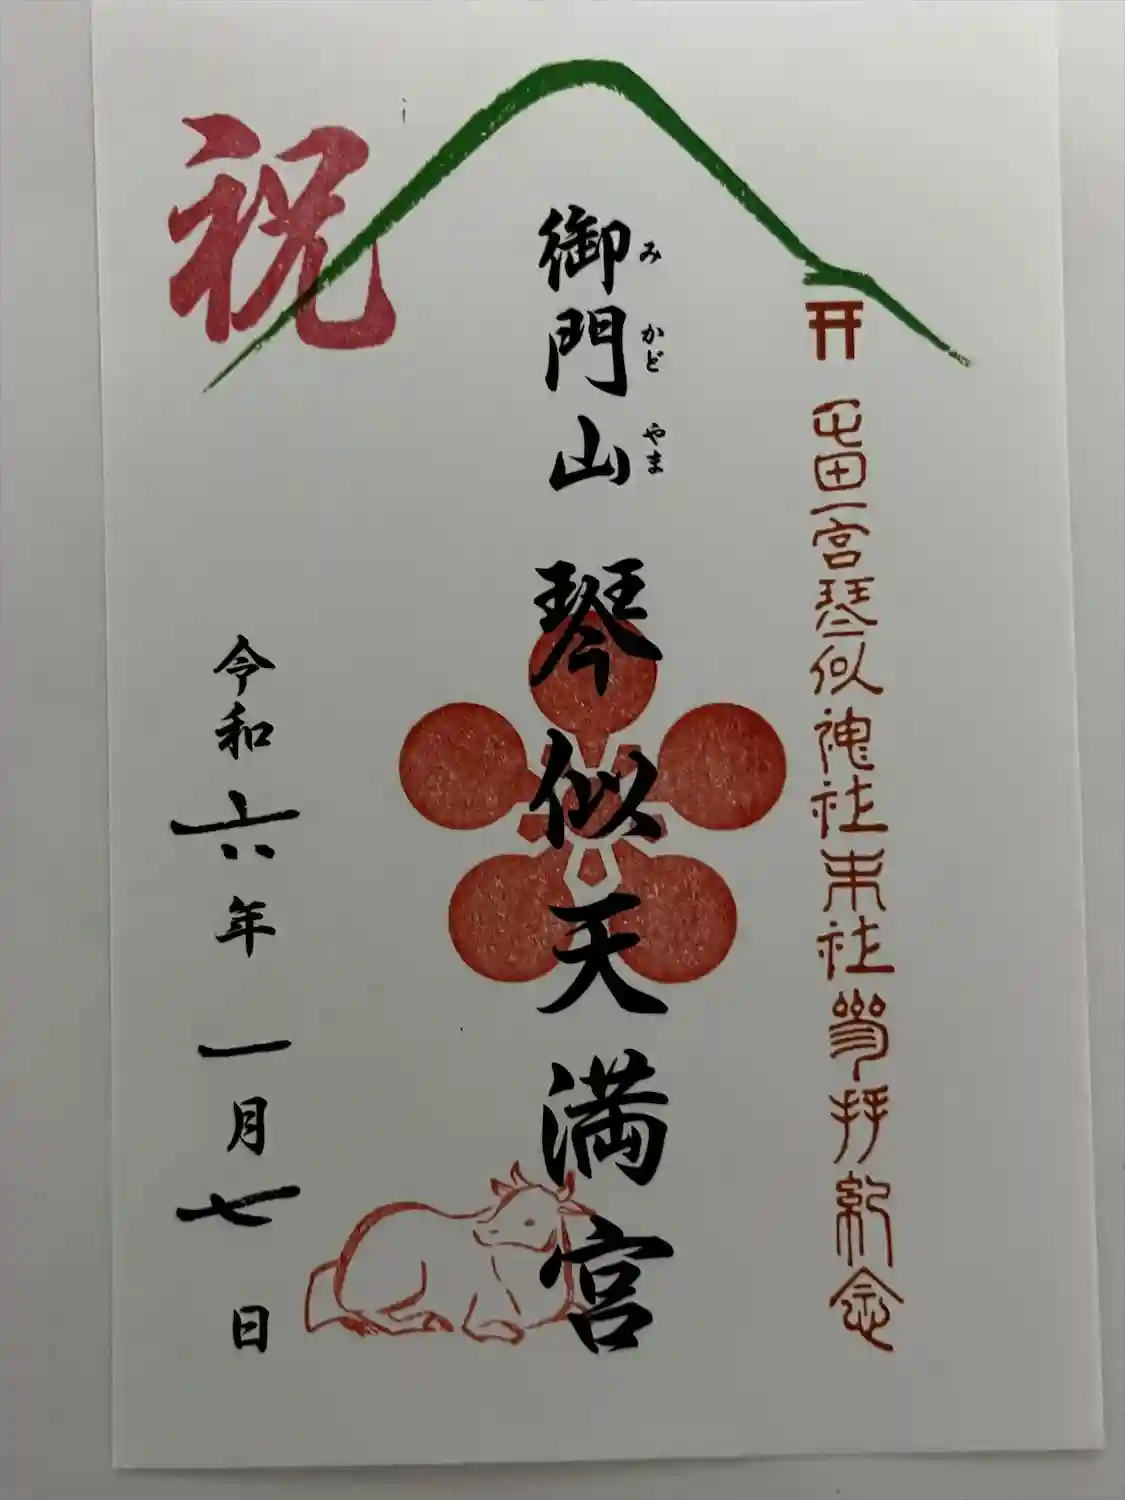 屯田一宮琴似神社末社参拝紀念
みかどやま
御門山 琴似天満宮
祝
令和六年 一月七日